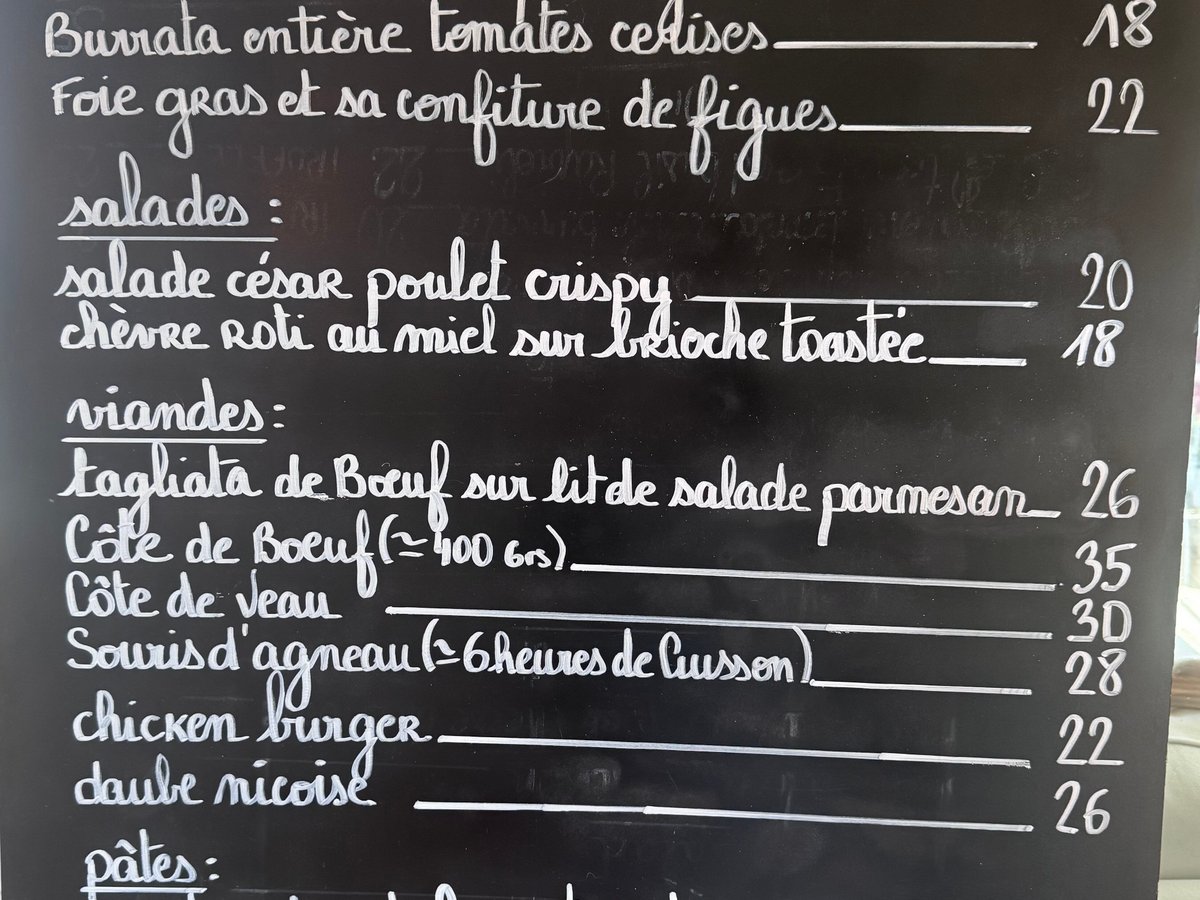 Burrata entière tomates cerises 18
Foie gras et sa confiture de figues 22
salades :
salade césar poulet crispy 20
chèvre Roti au miel sur brioche toastée 18
viandes :
tagliata de Bœuf sur lit de salade parmesan 26
Côte de Boeuf (≃ 400 Grs) 35
Côte de Veau 30
Souris d'agneau (≃ 6 heures de Cuisson) 28
chicken burger 22
daube nicoise 26
pâtes :